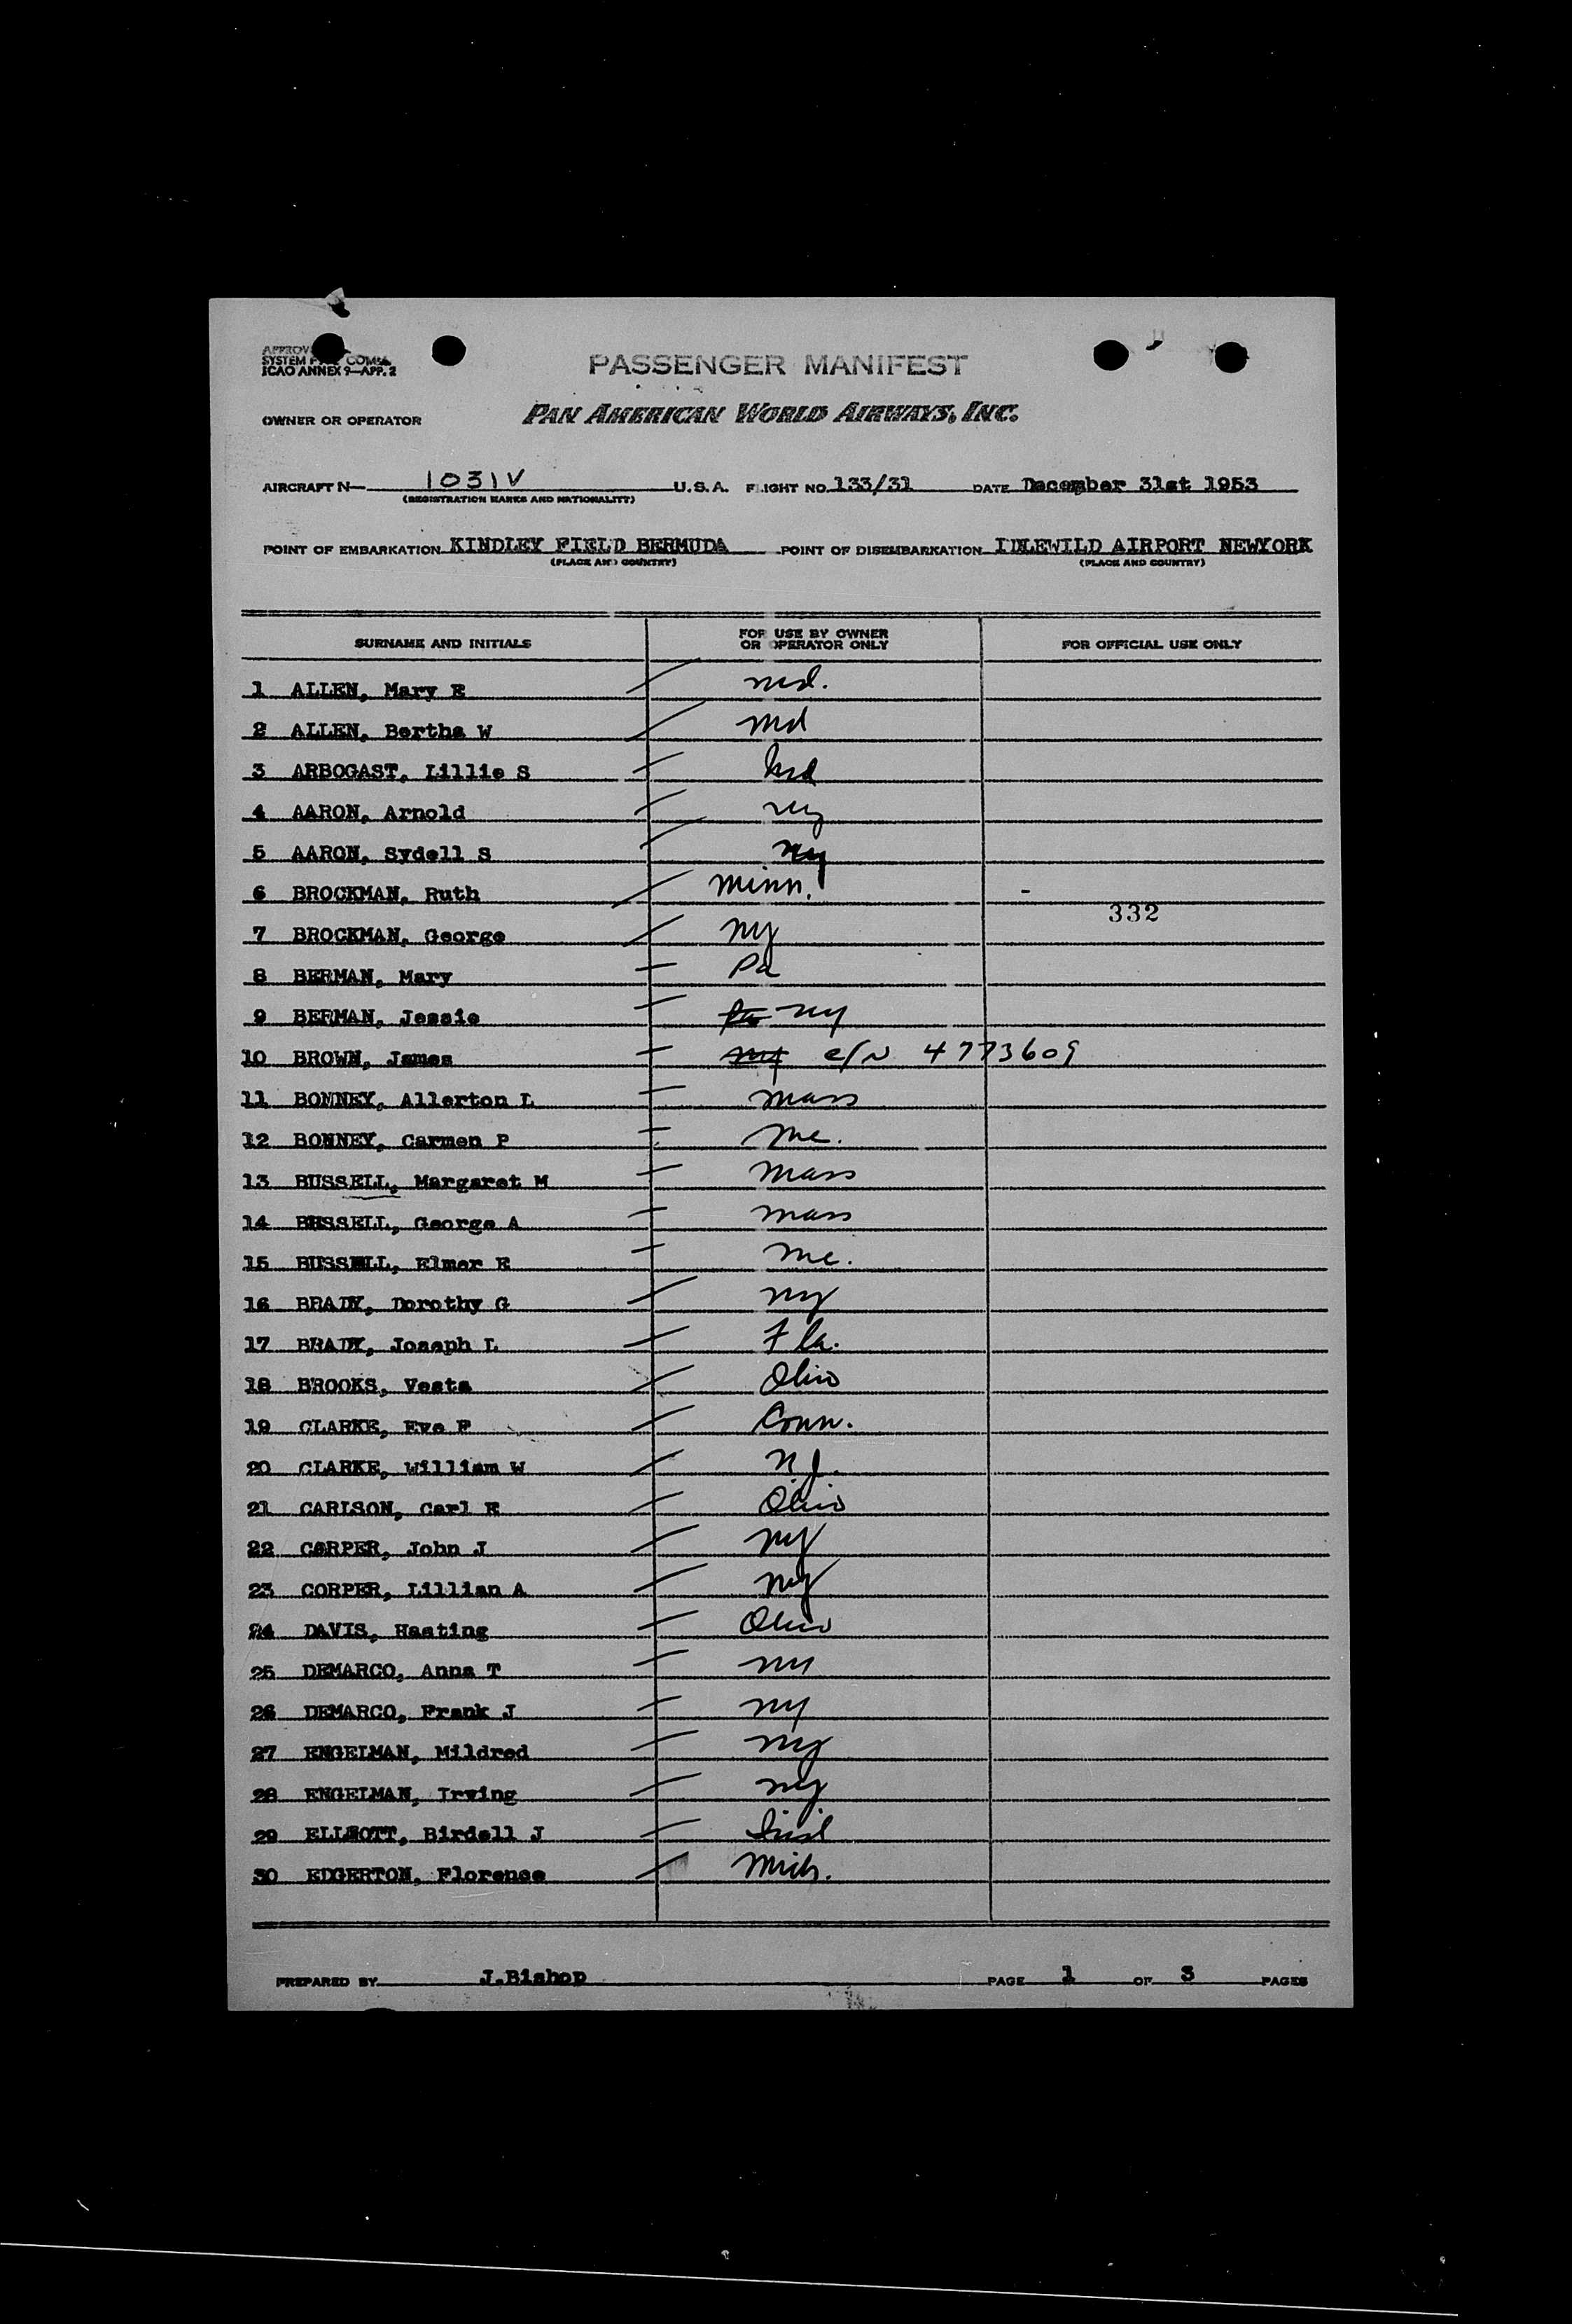 APPROV
SYSTEM F COM
ICAO ANNEX 9—APP. 2
PASSENGER MANIFEST
OWNER OR OPERATOR PAN AMERICAN WORLD AIRWAYS, INC.
AIRCRAFT N— 1031V U.S.A. FLIGHT NO. 133/31 DATE December 31st 1953
(REGISTRATION MARKS AND NATIONALITY)
POINT OF EMBARKATION KINDLEY FIELD BERMUDA POINT OF DISEMBARKATION IDLEWILD AIRPORT NEWYORK
(PLACE AND COUNTRY) (PLACE AND COUNTRY)
SURNAME AND INITIALS FOR USE BY OWNER OR OPERATOR ONLY FOR OFFICIAL USE ONLY
1 ALLEN, Mary E Md.
2 ALLEN, Bertha W Md
3 ARBOGAST, Lillie S Md
4 AARON, Arnold Ny
5 AARON, Sydell S Ny
6 BROCKMAN, Ruth Minn. -
332
7 BROCKMAN, George Ny
8 BERMAN, Mary Pa
9 BERMAN, Jessie Pa Ny
10 BROWN, James c/N 4773609
11 BONNEY, Allerton L Mass
12 BONNEY, Carmen P Me.
13 BUSSELL, Margaret M Mass
14 BUSSELL, George A Mass
15 BUSSELL, Elmer E Me.
16 BRADY, Dorothy G Ny
17 BRADY, Joseph L Fla.
18 BROOKS, Vesta Ohio
19 CLARKE, Eve F Conn.
20 CLARKE, William W N.J.
21 CARLSON, Carl E Ohio
22 CORPER, John J Ny
23 CORPER, Lillian A Ny
24 DAVIS, Hasting Ohio
25 DEMARCO, Anna T Ny
26 DEMARCO, Frank J Ny
27 ENGELMAN, Mildred Ny
28 ENGELMAN, Irving Ny
29 ELLIOTT, Birdell J Ind
30 EDGERTON, Florence Mich.
PREPARED BY J.Bishop PAGE 1 OF 3 PAGES